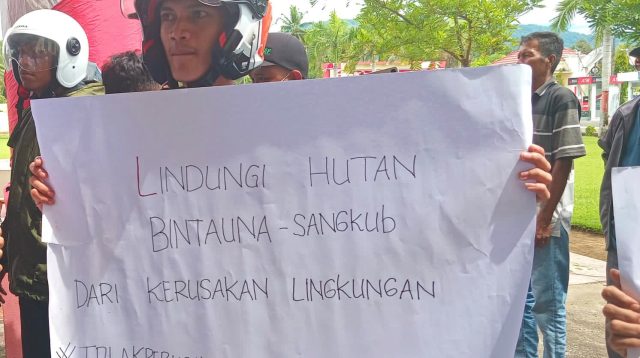 LINDUNGI HUTAN
BINTAUNA-SANGKUB
DARI KERUSAKAN LINGKUNGAN